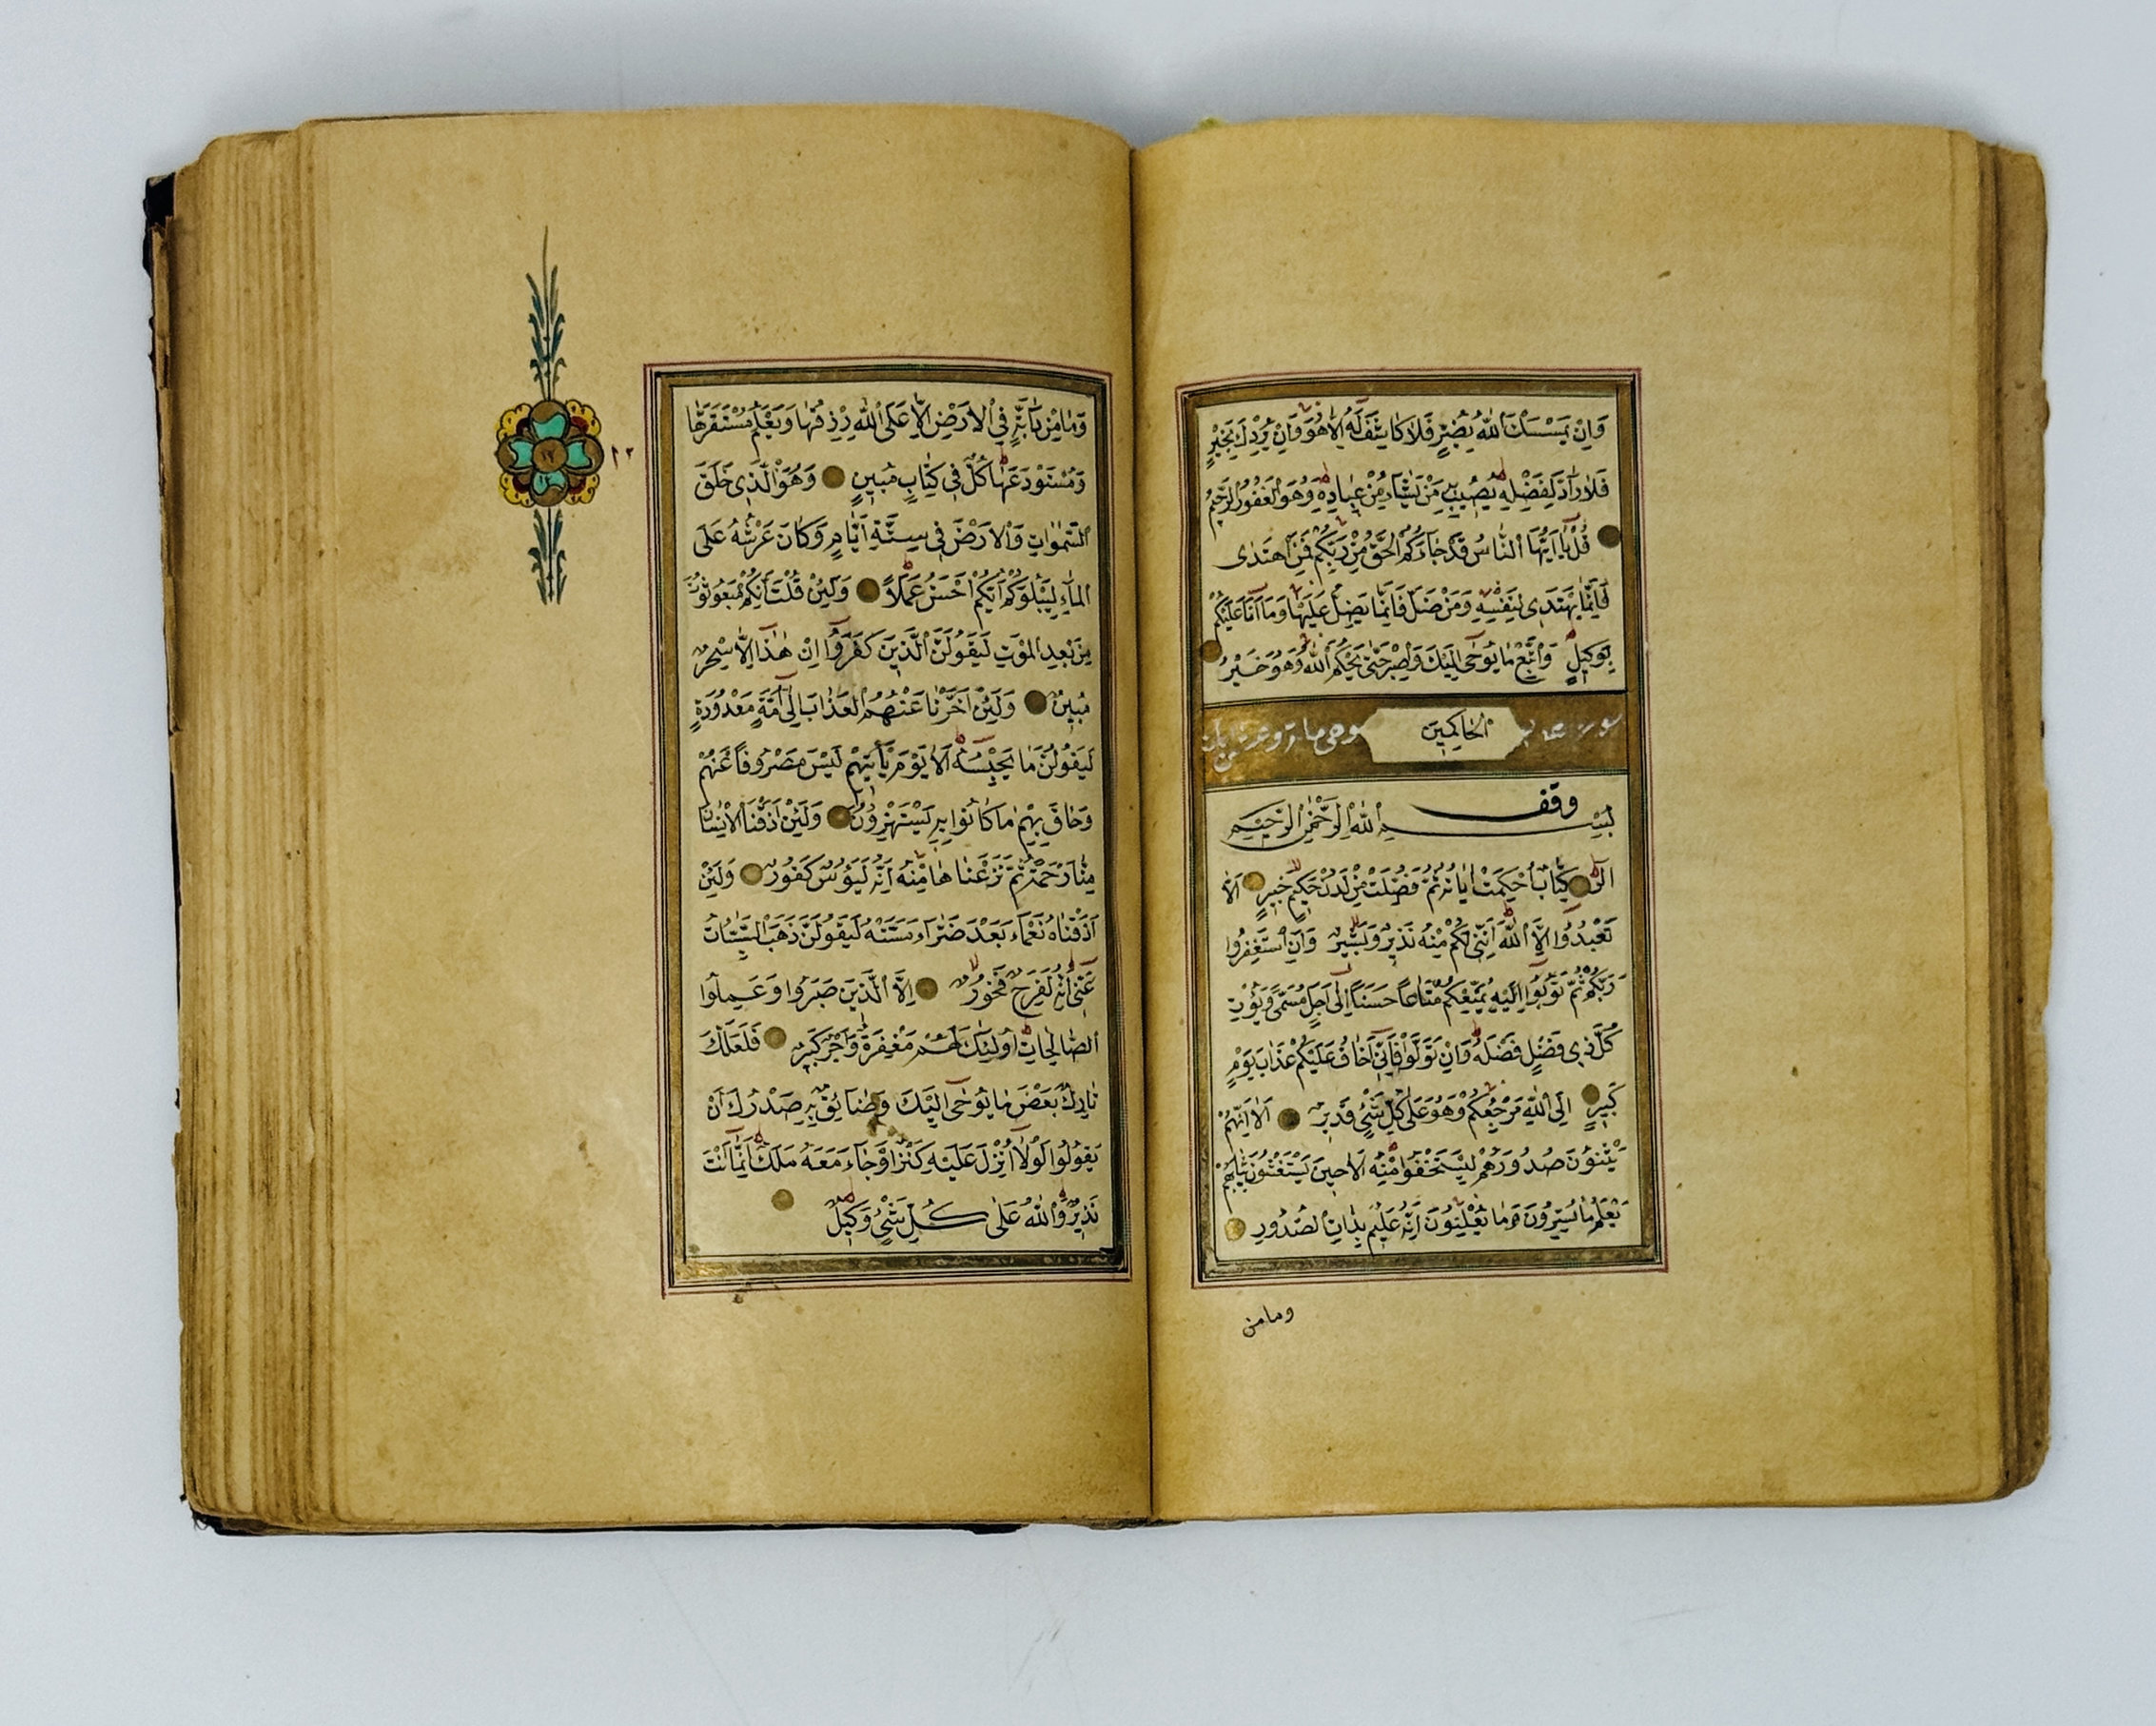 وَاِنْ يَمْسَسْكَ اللّٰهُ بِضُرٍّ فَلَا كَاشِفَ لَهُ اِلَّا هُوَ وَاِنْ يُرِدْكَ بِخَيْرٍ
فَلَا رَآدَّ لِفَضْلِهِ يُصِيبُ بِهِ مَنْ يَشَاءُ مِنْ عِبَادِهِ وَهُوَ الْغَفُورُ الرَّحِيمُ
قُلْ يَا اَيُّهَا النَّاسُ قَدْ جَاءَكُمُ الْحَقُّ مِنْ رَبِّكُمْ فَمَنِ اهْتَدٰى
فَاِنَّمَا يَهْتَدِى لِنَفْسِهِ وَمَنْ ضَلَّ فَاِنَّمَا يَضِلُّ عَلَيْهَا وَمَا اَنَا عَلَيْكُمْ
بِوَكِيلٍ وَاتَّبِعْ مَا يُوحٰى اِلَيْكَ وَاصْبِرْ حَتّٰى يَحْكُمَ اللّٰهُ وَهُوَ خَيْرُ
الْحَاكِمِينَ
وقف
بِسْمِ اللّٰهِ الرَّحْمٰنِ الرَّحِيمِ
الٓرٰ كِتَابٌ اُحْكِمَتْ اٰيَاتُهُ ثُمَّ فُصِّلَتْ مِنْ لَدُنْ حَكِيمٍ خَبِيرٍ اَلَّا
تَعْبُدُوا اِلَّا اللّٰهَ اِنَّنِى لَكُمْ مِنْهُ نَذِيرٌ وَبَشِيرٌ وَاَنِ اسْتَغْفِرُوا
رَبَّكُمْ ثُمَّ تُوبُوا اِلَيْهِ يُمَتِّعْكُمْ مَتَاعًا حَسَنًا اِلٰى اَجَلٍ مُسَمًّى وَيُؤْتِ
كُلَّ ذِى فَضْلٍ فَضْلَهُ وَاِنْ تَوَلَّوْا فَاِنِّى اَخَافُ عَلَيْكُمْ عَذَابَ يَوْمٍ
كَبِيرٍ اِلَى اللّٰهِ مَرْجِعُكُمْ وَهُوَ عَلٰى كُلِّ شَىْءٍ قَدِيرٌ اَلَا اِنَّهُمْ
يَثْنُونَ صُدُورَهُمْ لِيَسْتَخْفُوا مِنْهُ اَلَا حِينَ يَسْتَغْشُونَ ثِيَابَهُمْ
يَعْلَمُ مَا يُسِرُّونَ وَمَا يُعْلِنُونَ اِنَّهُ عَلِيمٌ بِذَاتِ الصُّدُورِ
وما من
وَمَا مِنْ دَابَّةٍ فِى الْاَرْضِ اِلَّا عَلَى اللّٰهِ رِزْقُهَا وَيَعْلَمُ مُسْتَقَرَّهَا
وَمُسْتَوْدَعَهَا كُلٌّ فِى كِتَابٍ مُبِينٍ وَهُوَ الَّذِى خَلَقَ
السَّمٰوَاتِ وَالْاَرْضَ فِى سِتَّةِ اَيَّامٍ وَكَانَ عَرْشُهُ عَلَى
الْمَاءِ لِيَبْلُوَكُمْ اَيُّكُمْ اَحْسَنُ عَمَلًا وَلَئِنْ قُلْتَ اِنَّكُمْ مَبْعُوثُونَ
مِنْ بَعْدِ الْمَوْتِ لَيَقُولَنَّ الَّذِينَ كَفَرُوا اِنْ هٰذَا اِلَّا سِحْرٌ
مُبِينٌ وَلَئِنْ اَخَّرْنَا عَنْهُمُ الْعَذَابَ اِلٰى اُمَّةٍ مَعْدُودَةٍ
لَيَقُولُنَّ مَا يَحْبِسُهُ اَلَا يَوْمَ يَأْتِيهِمْ لَيْسَ مَصْرُوفًا عَنْهُمْ
وَحَاقَ بِهِمْ مَا كَانُوا بِهِ يَسْتَهْزِؤُنَ وَلَئِنْ اَذَقْنَا الْاِنْسَانَ
مِنَّا رَحْمَةً ثُمَّ نَزَعْنَاهَا مِنْهُ اِنَّهُ لَيَؤُسٌ كَفُورٌ وَلَئِنْ
اَذَقْنَاهُ نَعْمَاءَ بَعْدَ ضَرَّاءَ مَسَّتْهُ لَيَقُولَنَّ ذَهَبَ السَّيِّئَاتُ
عَنِّى اِنَّهُ لَفَرِحٌ فَخُورٌ اِلَّا الَّذِينَ صَبَرُوا وَعَمِلُوا
الصَّالِحَاتِ اُولٰئِكَ لَهُمْ مَغْفِرَةٌ وَاَجْرٌ كَبِيرٌ فَلَعَلَّكَ
تَارِكٌ بَعْضَ مَا يُوحٰى اِلَيْكَ وَضَائِقٌ بِهِ صَدْرُكَ اَنْ
يَقُولُوا لَوْلَا اُنْزِلَ عَلَيْهِ كَنْزٌ اَوْ جَاءَ مَعَهُ مَلَكٌ اِنَّمَا اَنْتَ
نَذِيرٌ وَاللّٰهُ عَلٰى كُلِّ شَىْءٍ وَكِيلٌ